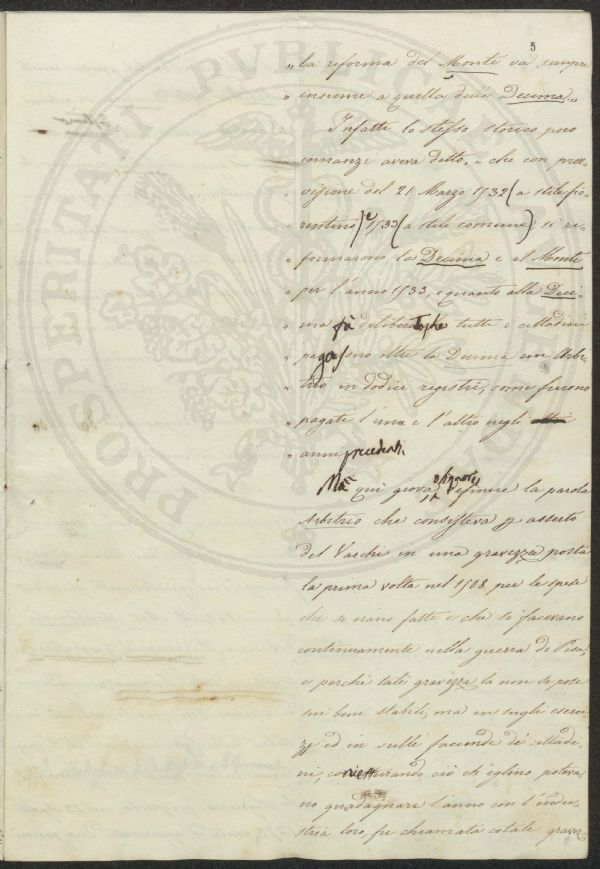 5
„ la riforma del Monte va sempre
„ insieme a quella della Decima „
Infatti lo stesso storico poco
innanzi aveva detto, „ che con prov-
„ visione del 21 Marzo 1532 (a stile fio-
„ rentino) e 1533 (a stile comune) si ri-
„ formarono la Decima e il Monte
„ per l'anno 1533, e quanto alla Deci-
„ ma fù deliberato che tutti i cittadini
„ pagassero oltre la Decima un Arbi-
„ trio in dodici registri, come furono
„ pagati l'una e l'altro negli
„ anni precedenti
Ma qui giova definire la parola
Arbitrio che consisteva p asserto
del Varchi in una gravezza posta
la prima volta nel 1508 per le spese
che si erano fatte e che si facevano
continuamente nella guerra di Pisa;
e perchè tale gravezza la non si pose
sui beni stabili, ma in sugli eserci-
zj ed in sulle faccende de' cittadi-
ni, conietturando ciò ch'eglino poteva-
no guadagnare l'anno con l'indu-
stria loro, fu chiamata cotale gravez-